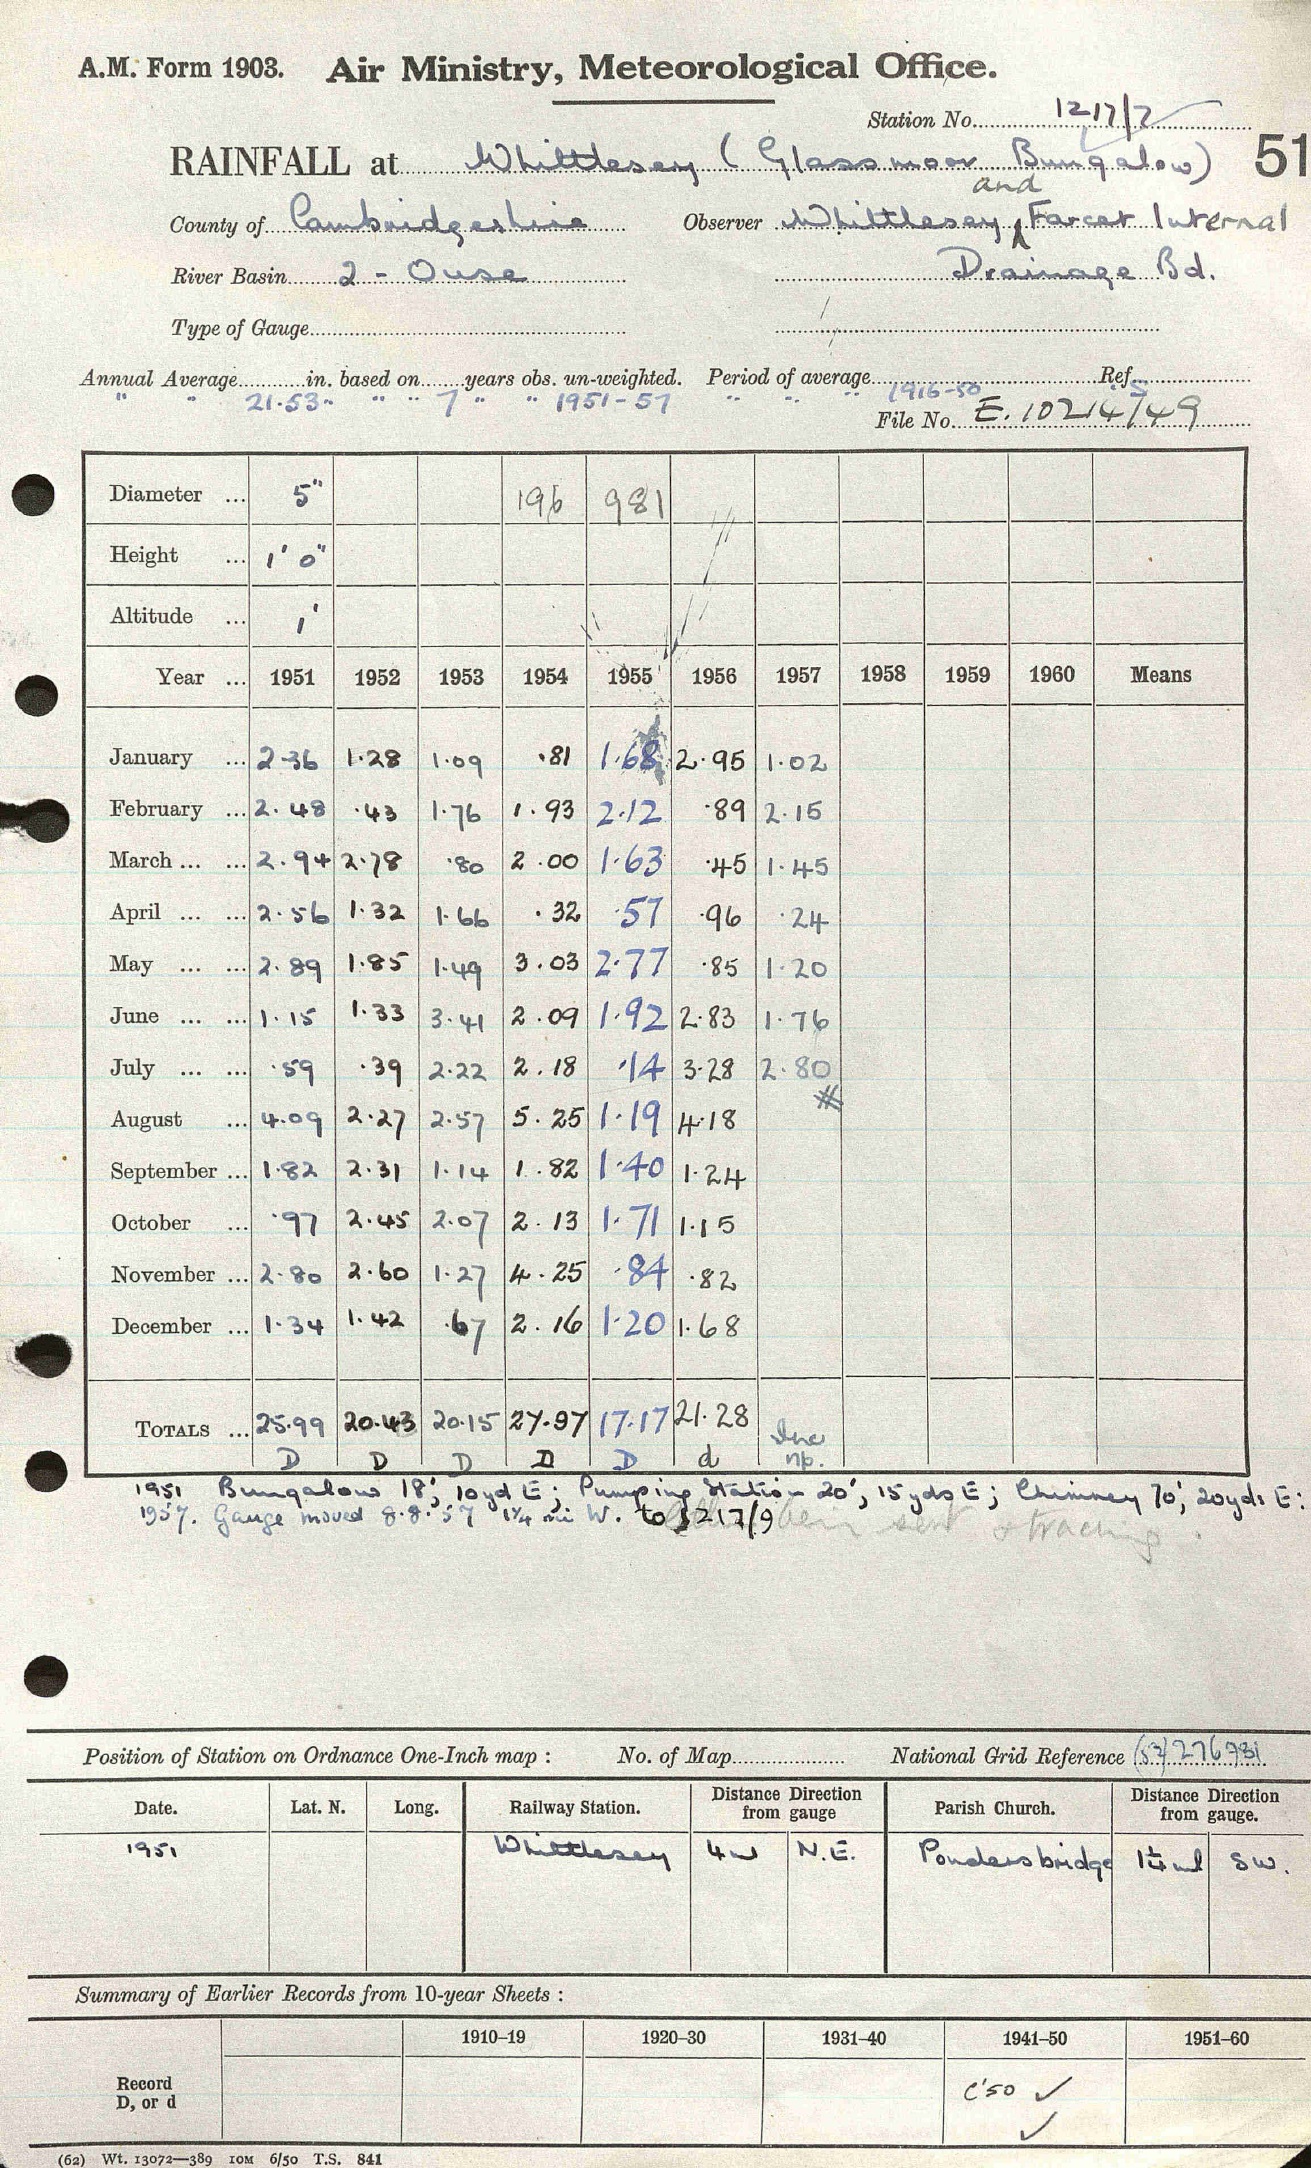 A.M. Form 1903. Air Ministry, Meteorological Office.
Station No. 1217/7
RAINFALL at Whittlesey (Glassmoor Bungalow) 51
and
County of Cambridgeshire Observer Whittlesey Farcet Internal
River Basin 2 - Ouse Drainage Bd.
Type of Gauge
Annual Average in. based on years obs. un-weighted. Period of average Ref.
" " 21.53" " " 7 " " 1951-57 " " " 1916-50 S
File No. E. 10214/49
Diameter ... 5" 196 981
Height ... 1' 0"
Altitude ... 1'
Year ... 1951 1952 1953 1954 1955 1956 1957 1958 1959 1960 Means
January ... 2.36 1.28 1.09 .81 1.68 2.95 1.02
February ... 2.48 .43 1.76 1.93 2.12 .89 2.15
March ... ... 2.94 2.78 .80 2.00 1.63 .45 1.45
April ... ... 2.56 1.32 1.66 .32 .57 .96 .24
May ... ... 2.89 1.85 1.49 3.03 2.77 .85 1.20
June ... ... 1.15 1.33 3.41 2.09 1.92 2.83 1.76
July ... ... .59 .39 2.22 2.18 .14 3.28 2.80
August ... 4.09 2.27 2.57 5.25 1.19 4.18 #
September ... 1.82 2.31 1.14 1.82 1.40 1.24
October ... .97 2.45 2.07 2.13 1.71 1.15
November ... 2.80 2.60 1.27 4.25 .84 .82
December ... 1.34 1.42 .67 2.16 1.20 1.68
TOTALS ... 25.99 20.43 20.15 27.97 17.17 21.28
D D D D D d
1951 Bungalow 18', 10yd E; Pumping Station 20', 15yds E; Chimney 70', 20yds E:
1957. Gauge moved 8.8.57 1¼ mi W. to 1217/9 been sent tracing.
Position of Station on Ordnance One-Inch map : No. of Map National Grid Reference (52)276931
Date. Lat. N. Long. Railway Station. Distance from gauge Direction Parish Church. Distance from gauge. Direction
1951 Whittlesey 4 N.E. Pondersbridge 1¼ml SW.
Summary of Earlier Records from 10-year Sheets :
1910–19 1920–30 1931–40 1941–50 1951–60
Record
D, or d
C'50 ✓
✓
(62) Wt. 13072—389 10M 6/50 T.S. 841